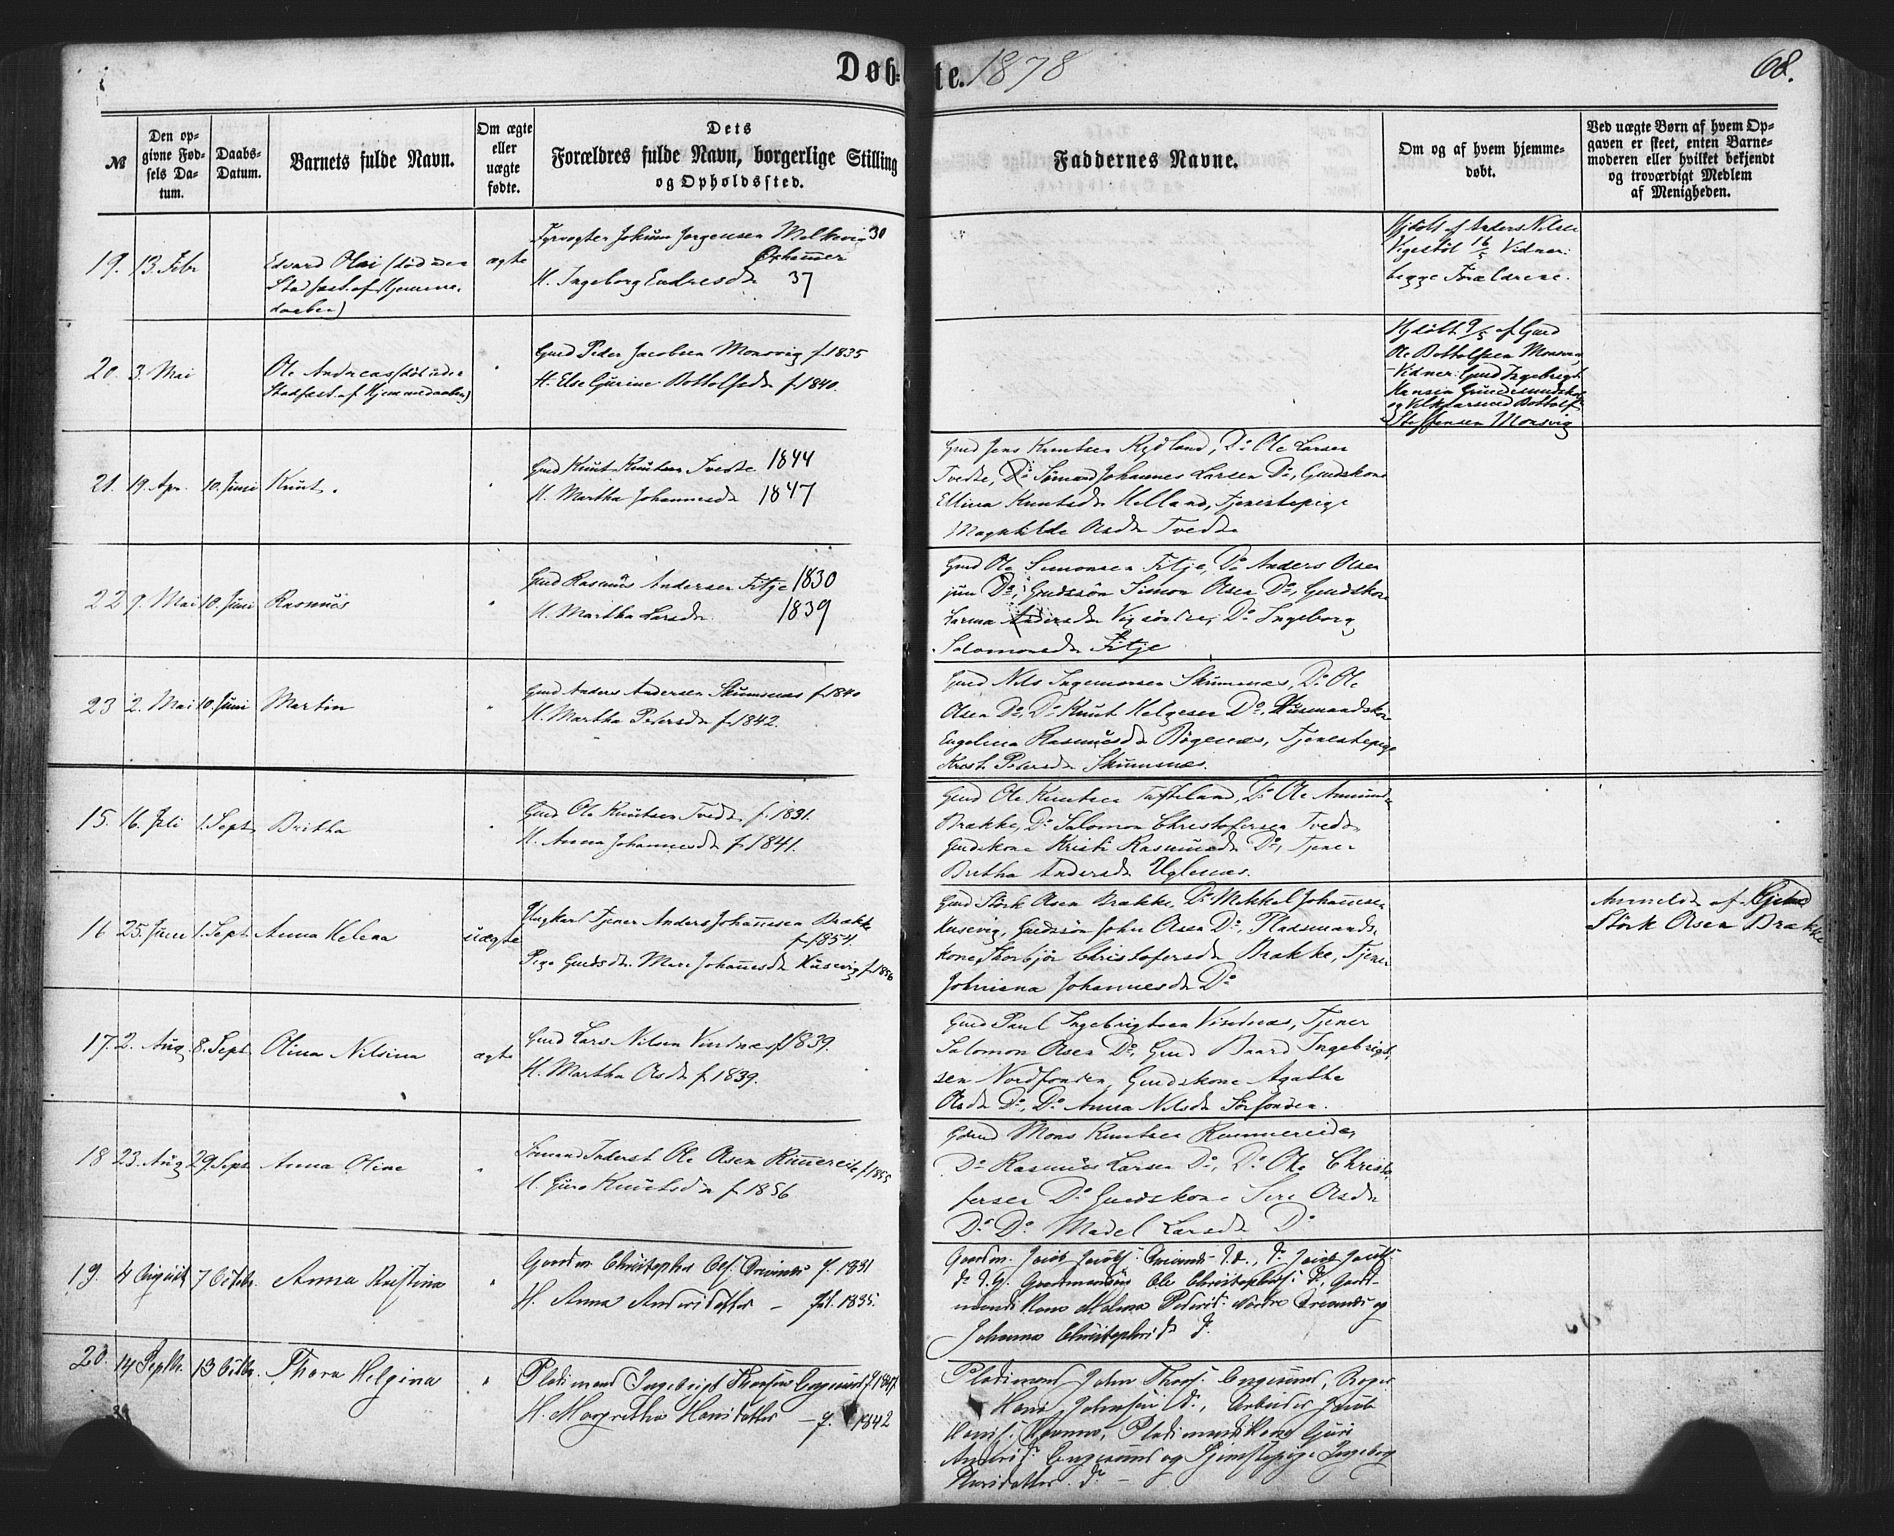 Døb-
te. 1878
68.
№
Den op-
givne Fød-
sels Da-
tum.
Daabs-
Datum.
Barnets fulde Navn.
Om ægte
eller
uægte
fødte.
Dets
Forældres fulde Navn, borgerlige Stilling
og Opholdssted.
Faddernes Navne.
Om og af hvem hjemme-
døbt.
Ved uægte Børn af hvem Op-
gaven er skeet, enten Barne-
moderen eller hvilket bekjendt
og troværdigt Medlem
af Menigheden.
19. 13. Febr
Edvard Olai (død uden
Stadfæst. af Hjemme-
daaben)
ægte
Fyrvogter Jokum Jørgensen 30
H. Ingeborg Endresdr 37
Hjdøbt af Anders Nilsen
Vidner:
begge Forældrene.
20. 3. Mai
Ole Andreas (død uden
Stadfæst. af Hjemmedaaben)
Gmd Peder Jacobsen Monsvig f. 1835
H. Else Gurine Bottolfsdr f. 1840.
Hjdøbt 9/5 af Gmd
Ole Bottolfsen Monsvig
Vidner: Gmd Ingebrigt
Bottolf
Steffensen Monsvig
21. 19. Apr. 10. Juni Knut.
Gmd Knut Knutsen Tvedte 1844
H. Martha Johannesdr 1847
Gmd Jens Knutsen Rydland, Do Ole Larsen
Tvedte, Do Sømand Johannes Larsen Do, Gmdskone
Ellina Knutsdr Helland, Tjenestepige
Magthilde Olsdr Tvedte
22 9. Mai 10. Juni Rasmus
Gmd Rasmus Andersen Fitje 1830
H. Martha Larsdr. 1839
Gmd Ole Simonsen Fitje, Do Anders Olsen
jun Do, Gmdssøn Simon Olsen Do, Gmdskone
Andersdr Do Ingeborg
Salomonsdr Fitje
23 2. Mai 10. Juni Martin
Gmd Anders Andersen Skumsnæs f. 1840
H. Martha Pedersdr f. 1842.
Gmd Nils Ingemorsen Skumsnæs, Do Ole
Olsen Do, Do Knut Helgesen Do, Husmandskone
Engelina Rasmusdr Bøgenæs, Tjenestepige
Kristi Pedersdr Skumsnæs.
15. 16. Juli 1. Sept. Britha
Gmd Ole Knutsen Tvedt f. 1831.
H. Anna Johannesdr f. 1841.
Gmd Ole Knutsen Tufteland, Do Ole Amunds.
Brække, Do Salomon Christofersen Tvedt
Gmdskone Kristi Rasmusdr Do, Tjener
Britha Andersdr Uglenæs.
16 25. Juni 1. Sept. Anna Helena
uægte
Ungkarl Tjener Anders Johannesen Brække
f. 1854.
Pige Gmdsdr. Mari Johannesdr Kusevig f. 1856
Gmd Størk Olsen Brække, Do Mekkel Johannesen
Kusevig, Gmdssøn John Olsen Do, Pladsmands-
kone Thorbjør Christofersdr Brække, Tjener
Johnina Johannesdr Do
Anmeldt af
Størk Olsen Brække
17. 2. Aug 8. Sept. Olina Nilsina
ægte
Gmd Lars Nilsen Vindnæs f. 1839.
H. Martha Olsdr f. 1839.
Gmd Paul Ingebrigtsen Vindnæs, Tjener
Salomon Olsen Do, Gmd Baard Ingebrigt-
sen Nordfonden, Gmdskone Agathe
Olsdr Do, Do Anna Nilsdr Sørfonden.
18 23. Aug 29. Sept. Anna Oline
Sømand Inderst Ole Olsen Rimmereide f. 1855
H. Guro Knutsdr f. 1856
Gmd Mons Knutsen Rimmereide,
Do Rasmus Larsen Do, Do Ole Christo-
fersen Do Gmdskone Siri Olsdr
Do Do Madel Larsdr Do
19. 4 August 7 Octobr. Anna Kristina
Gaardm. Christopher Ols. f. 1831
H. Anna Andersdatter — fød. 1835.
Gaardm. Jacob Jacobs.
Gaardmandssøn Ole Christophers. Do, Gaard-
mands Kone Malena Pedersd. Nordre og
Johanna Christophersdr Do
20. 14 Septbr. 13 Octbr. Thora Helgina
Pladsmand Ingebrigt Thorsen Engesund f. 1847.
H. Margretha Hansdatter — f. 1842
Pladsmand John Thors. Engesund,
Hans Johnsen Do, Arbeider Jacob
Hans. Pladsmands Kone Guri
Andersd. Engesund og Tjenestepige Ingeborg
Thorsdatter Do —